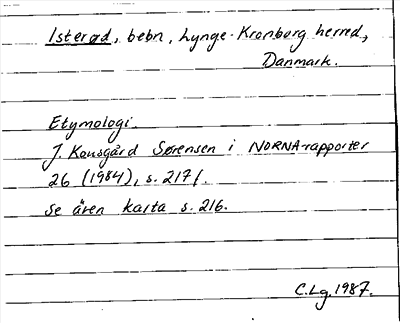 Isterød, bebn, Lynge-Kronborg herred,
Danmark.
Etymologi.
J. Kousgård Sørensen i NORNA-rapporter
26 (1984), s. 217f.
Se även karta s. 216.
C.Lg. 1987.